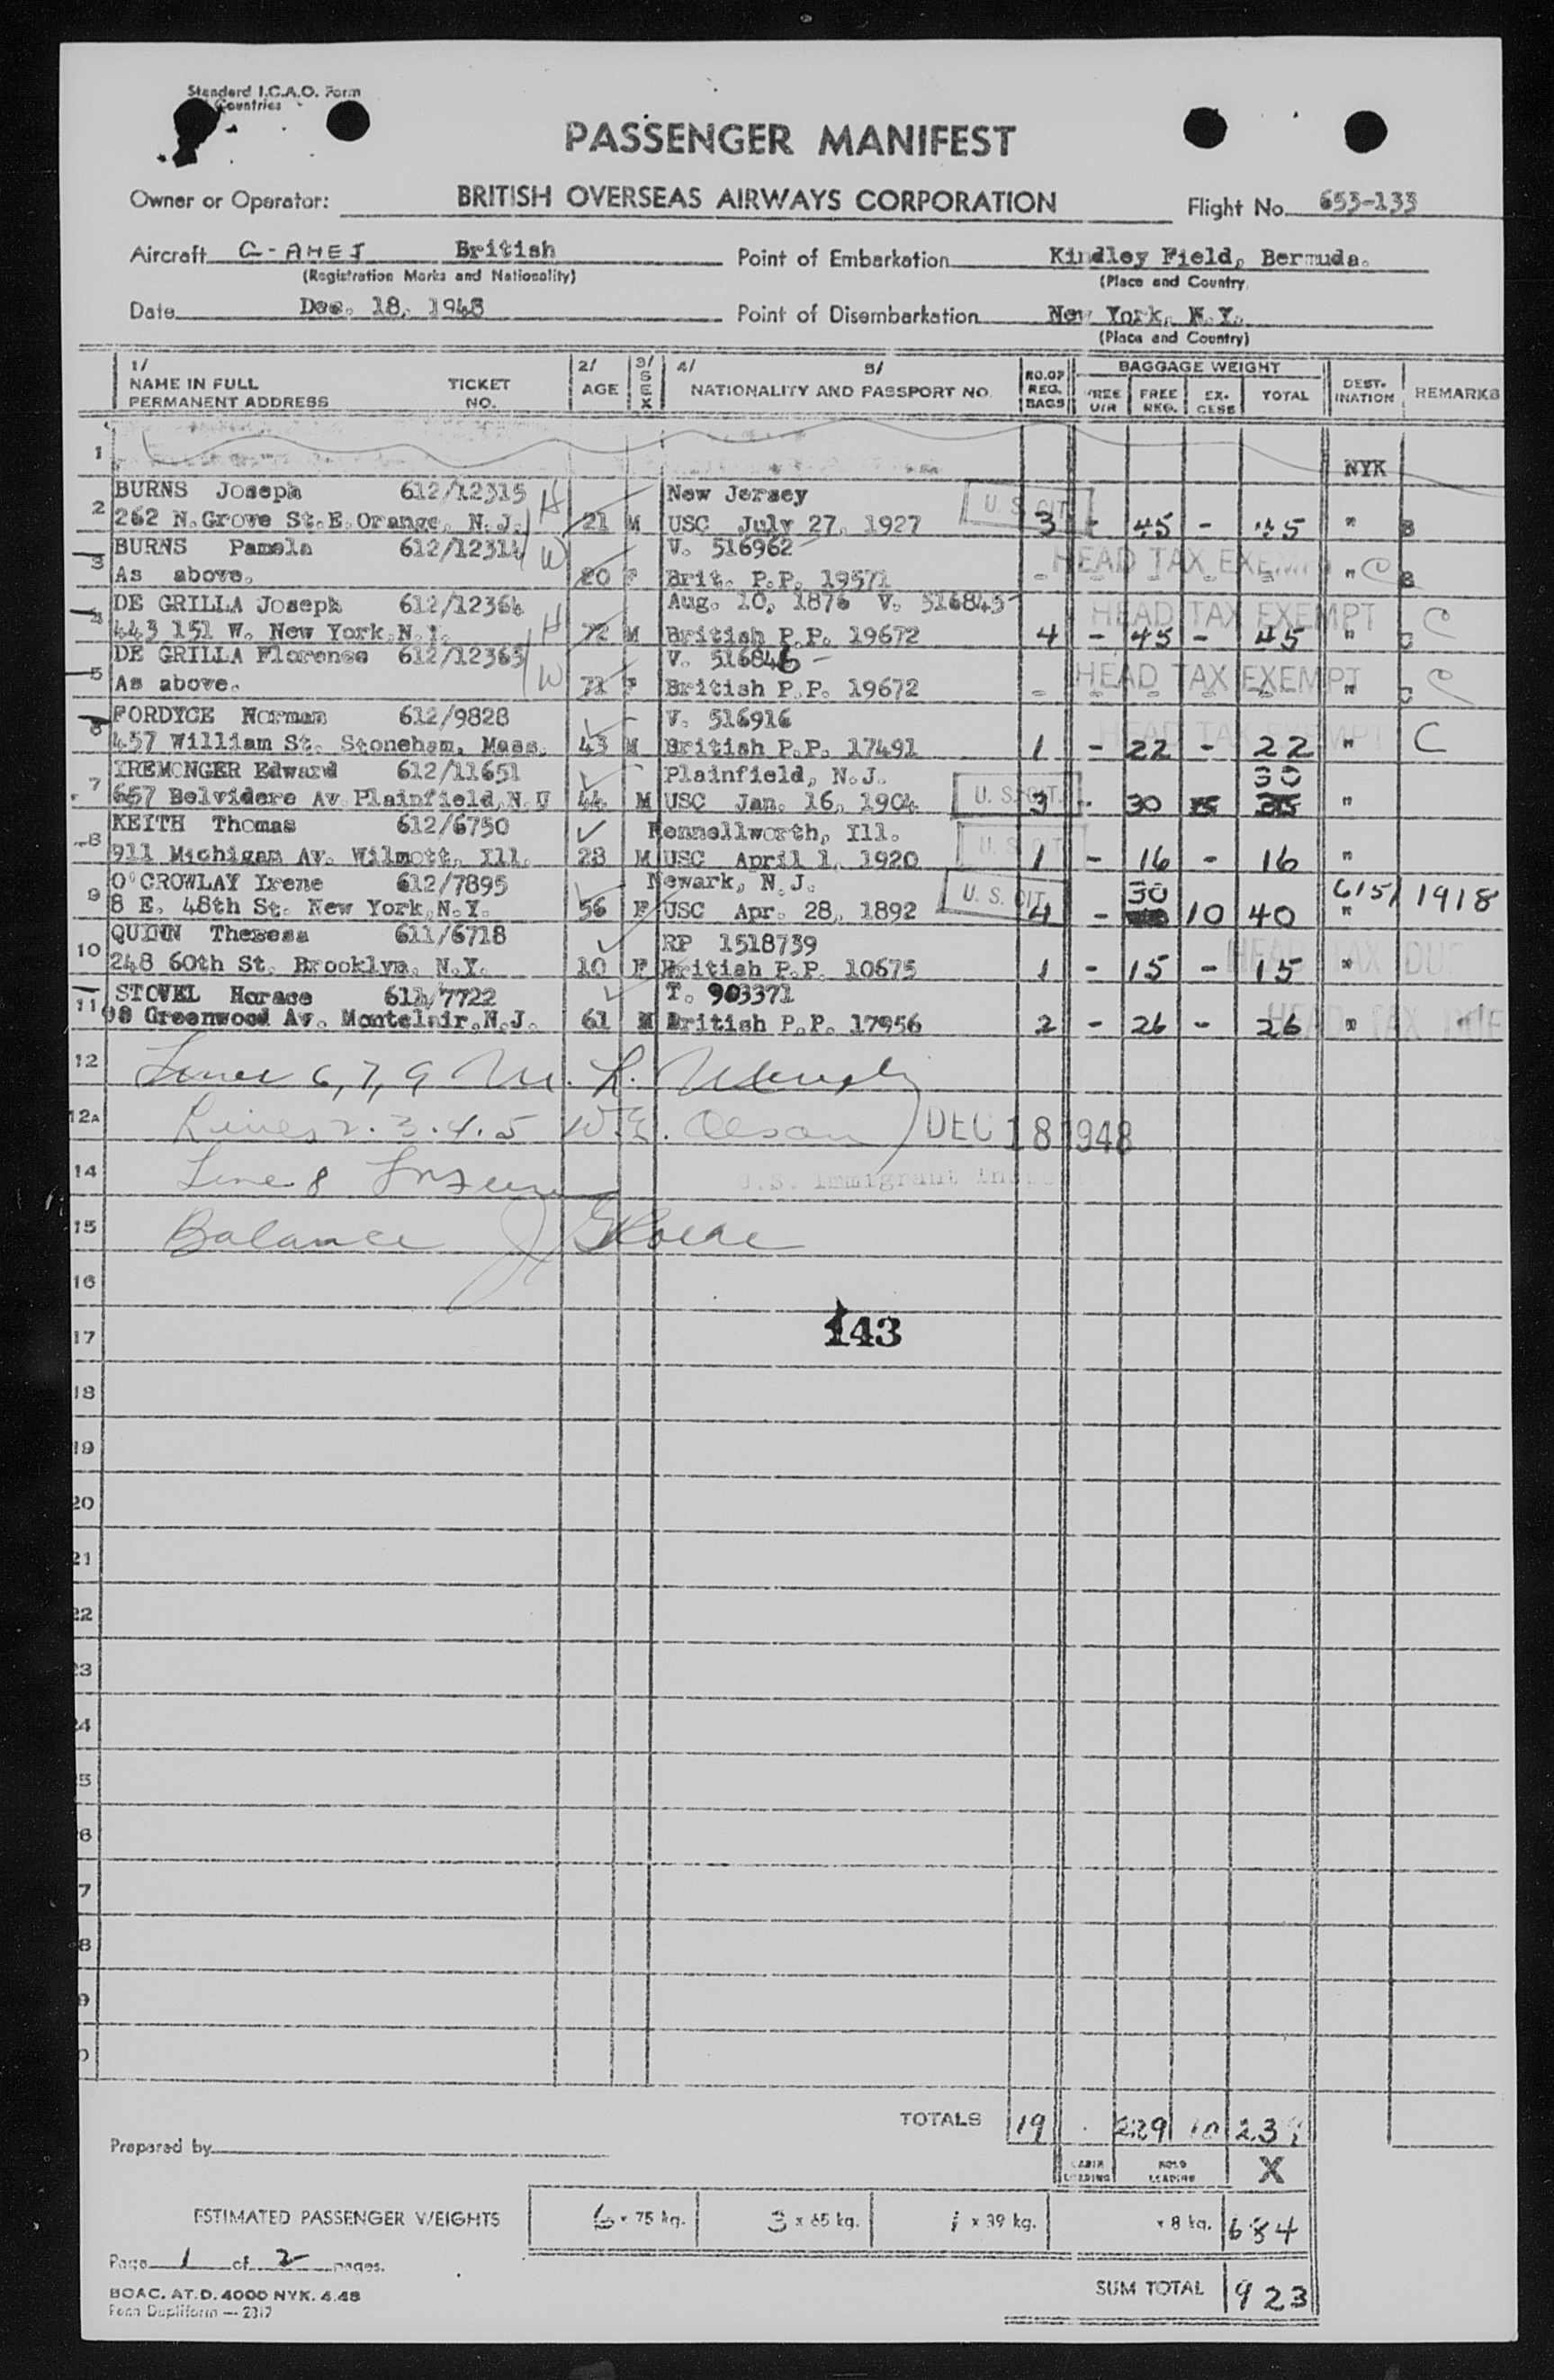 Standard I.C.A.O. Form
Countries
PASSENGER MANIFEST
Owner or Operator: BRITISH OVERSEAS AIRWAYS CORPORATION Flight No. 653-133
Aircraft G-AHEJ British Point of Embarkation Kindley Field, Bermuda.
(Registration Marks and Nationality) (Place and Country)
Date Dec. 18, 1948 Point of Disembarkation New York, N.Y.
(Place and Country)
1/ 2/ 3/ 4/ 5/ BAGGAGE WEIGHT
NAME IN FULL TICKET AGE SEX NATIONALITY AND PASSPORT NO. NO. OF REG. BAGS FREE U/R FREE REG. EX-CESS TOTAL DEST-INATION REMARKS
PERMANENT ADDRESS NO.
1 NYK
BURNS Joseph 612/12315 H New Jersey U. S. CIT.
2 262 N.Grove St.E.Orange, N.J. 21 M USC July 27, 1927 3 - 45 - 45 " B
BURNS Pamela 612/12314 W V. 516962 HEAD TAX EXEMPT
3 As above. 20 F Brit. P.P. 19571 - - - - - " C B
DE GRILLA Joseph 612/12364 H Aug. 10, 1876 V. 516845 HEAD TAX EXEMPT C
4 443 151 W. New York,N.Y. 72 M British P.P. 19672 4 - 45 - 45 " C
DE GRILLA Florence 612/12365 W V. 516846 - HEAD TAX EXEMPT C
5 As above. 71 F British P.P. 19672 - - - - - " C
FORDYCE Norman 612/9828 V. 516916 HEAD TAX EXEMPT
6 457 William St. Stoneham, Mass. 43 M British P.P. 17491 1 - 22 - 22 " C
IREMONGER Edward 612/11651 Plainfield, N.J. U. S. CIT. 30
7 657 Belvidere Av Plainfield,N.J 44 M USC Jan. 16, 1904 3 - 30 "
KEITH Thomas 612/6750 Kennellworth, Ill. U. S. CIT.
8 911 Michigan Av. Wilmott, Ill. 28 M USC April 1, 1920 1 - 16 - 16 "
O'CROWLAY Irene 612/7895 Newark, N.J. U. S. CIT. 30 615/1918
9 8 E. 48th St. New York,N.Y. 56 F USC Apr. 28, 1892 4 - 10 40 "
QUINN Theresa 611/6718 RP 1518739 HEAD TAX DUE
10 248 60th St. Brooklyn, N.Y. 10 F British P.P. 10675 1 - 15 - 15 "
STOVEL Horace 611/7722 T. 903371 HEAD TAX DUE
11 98 Greenwood Av. Montclair,N.J. 61 M British P.P. 17956 2 - 26 - 26 "
12 Lines 6, 7, 9 M. L.
12A Lines 2. 3. 4. 5 W.E. Olson DEC 18 1948
14 Line 8 U.S. Immigrant
15 Balance J
16
17 143
18
19
20
21
22
23
24
5
6
7
8
9
0
TOTALS 19 229 10 239
Prepared by
CABIN LOADING HOLD LEADING X
ESTIMATED PASSENGER WEIGHTS 6 x 75 kg. 3 x 65 kg. 1 x 39 kg. x 8 kg. 684
Page 1 of 2 pages.
BOAC. AT.D. 4000 NYK. 4.48 SUM TOTAL 923
Form Dupliform — 2317